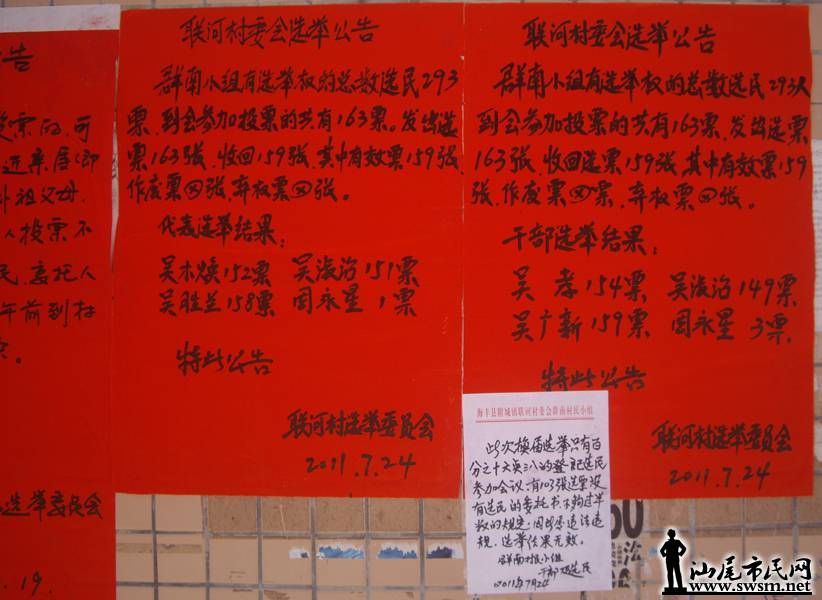 告
票的,可
外祖父母,
人投票不
民,委托人
午前到村
选举委员会
.19.
联河村委会选举公告
群南小组有选举权的总数选民293
票,到会参加投票的共有163票。发出选
票163张,收回159张,其中有效票159张,
作废票四张,弃权票四张。
代表选举结果:
吴木焕152票 吴浚治151票
吴胜兰158票 周永星1票
特此公告
联河村选举委员会
2011.7.24
联河村委会选举公告
群南小组有选举权的总数选民293人
到会参加投票的共有163票,发出选票
163张,收回选票159张,其中有效票159
张,作废票四票,弃权票四张。
干部选举结果:
吴孝154票 吴浚治149票
吴广新159票 周永星3票
特此公告
联河村选举委员会
2011.7.24
海丰县附城镇联河村委会群南村民小组
此次换届选举只有百
分之十六点三八的登记选民
参加会议,有103张选票没
有选民的委托书,不够过半
数的规定,因此是违法违
规,选举结果无效。
群南村小组
干部 选民
2011年7月24
汕尾市民网
www.swsm.net